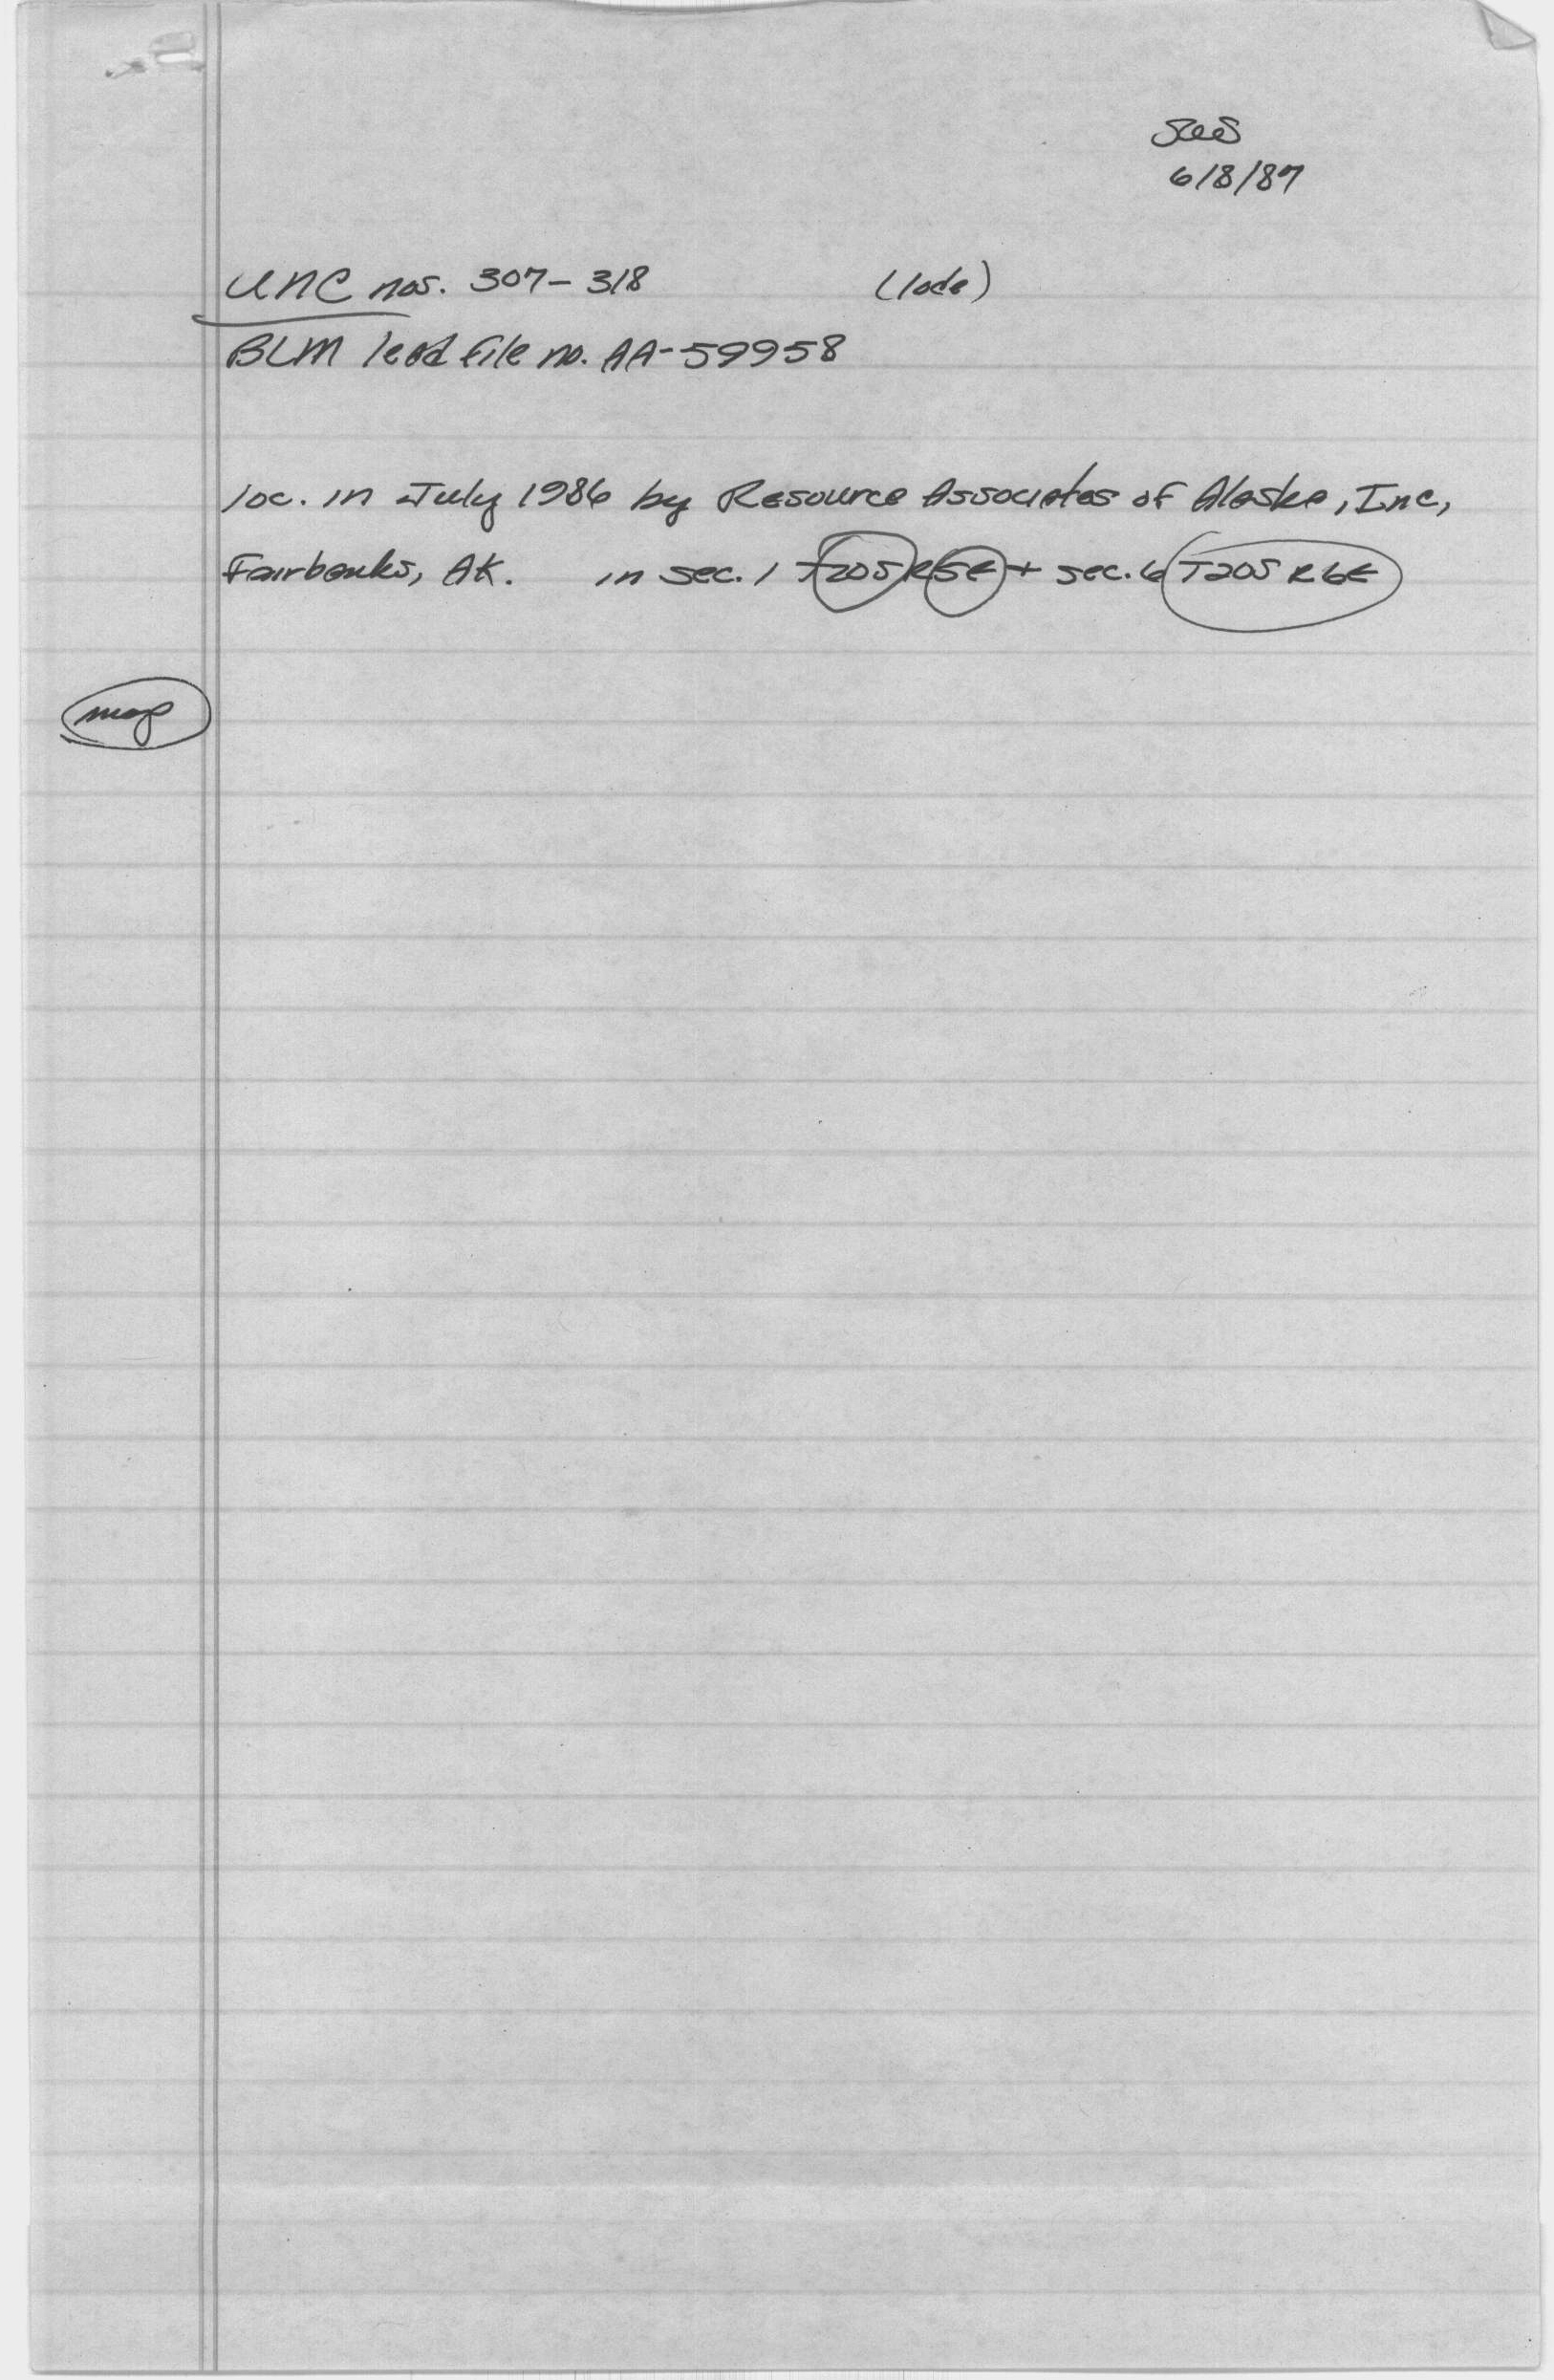 6/8/87
UNC nos. 307-318 (lode)
BLM lead file no. AA-59958
loc. in July 1986 by Resource Associates of Alaska, Inc,
Fairbanks, AK. in sec. 1 T20S R5E + sec. 6 T20S R6E
map